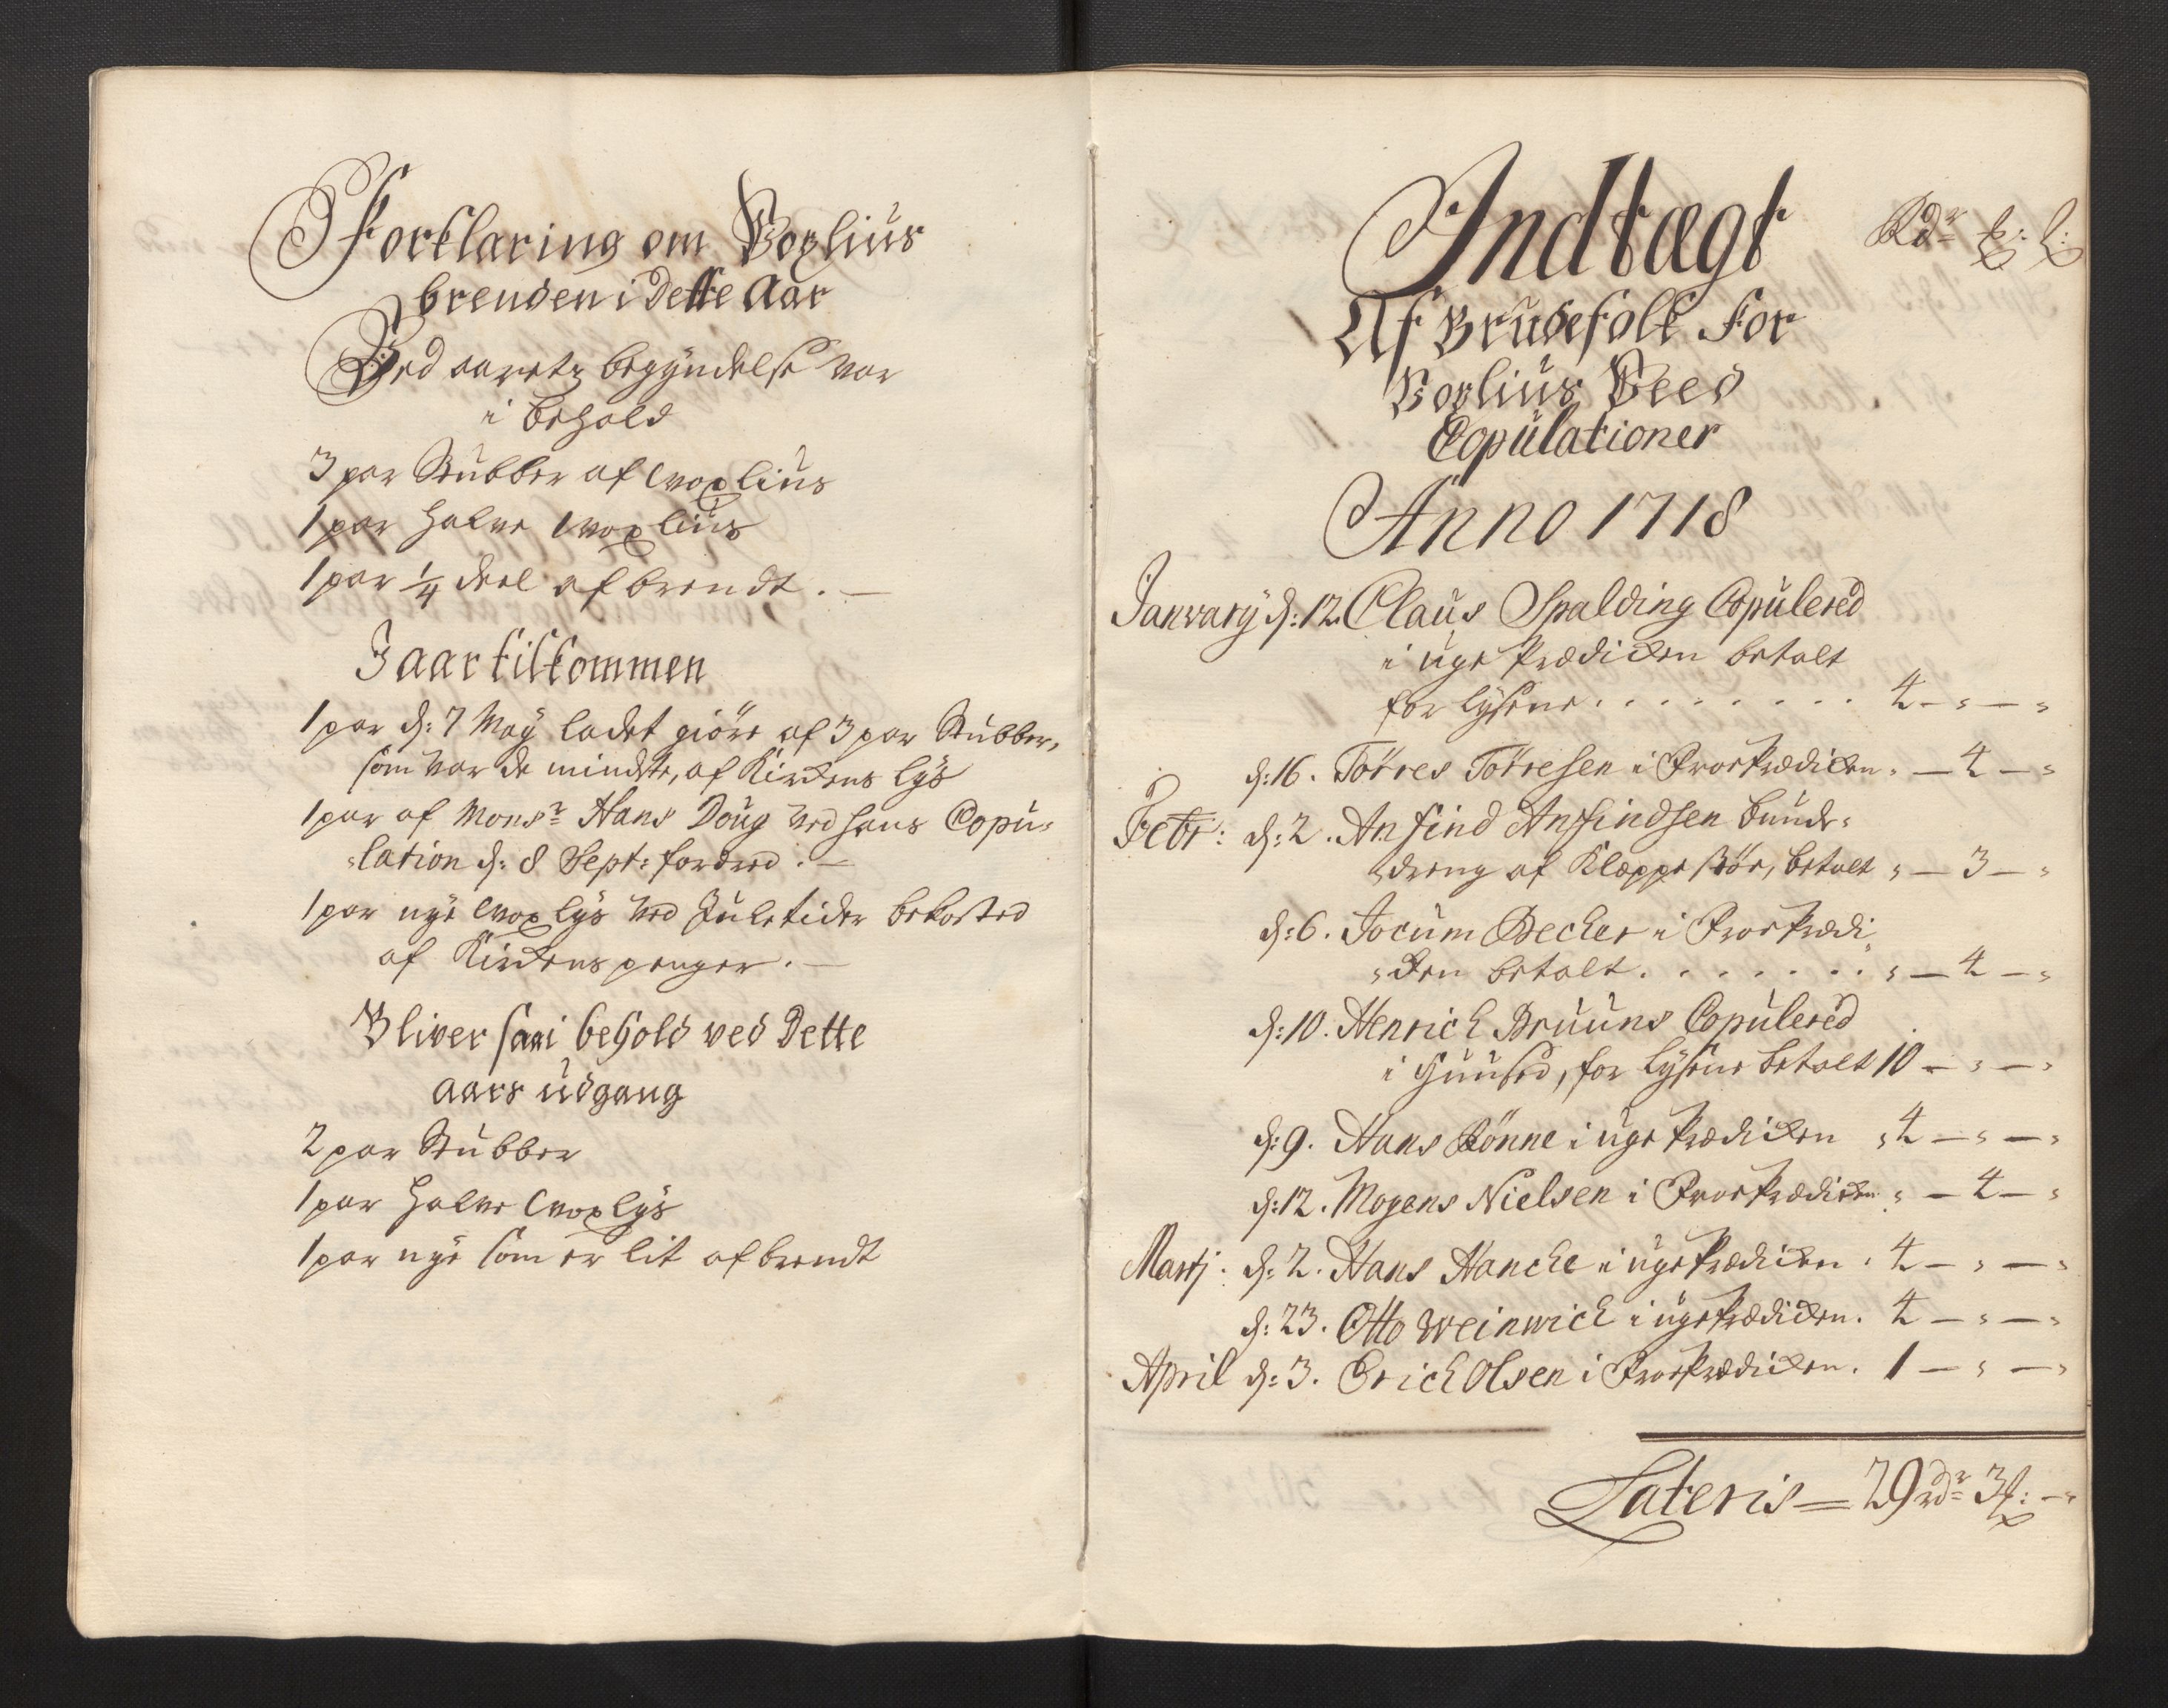 Forklaring om Voxlius
brenden i Dette Aar
Ved aaretz begyndelse var
i behold
3 par Stubber af Woxlius
1 par halve Woxlius
1 par 1/4 deel afbrendt. —
I aar tilkommen
1 par d: 7 May ladet giöre af 3 par Stubber,
som var de mindste, af Kirkens lys
1 par af Monsr Hans Doug ved hans Copu-
-lation d: 8 Sept: foræred. —
1 par nye Woxlys ved Juletider bekosted
af Kirkens penger. —
Bliver saa i behold ved Dette
aars udgang
2 par Stubber
1 par halve Woxlys
1 par nye som er lit afbrendt
Indtægt
Rdr ꝑ: ß:
Af Brudefolk For
Voxlius Veed
Copulationer
Anno 1718
Janvary d: 12. Claus Spalding Copulered
i uge Prædicken betalt
for lysene . . . . . . . . . 4 — " — "
d: 16. Törres Törresen i Froprædicken. — 4 — "
Febr: d: 2. Anfind Anffindsen bunde-
dreng af Klæppe Söe, betalt " — 3 — "
d: 6. Jocum Becher i Froprædi
-cken betalt. . . . . . . . " — 4 — "
d: 10. Henrich Bruuns Copulered
i Huused, for lysene betalt 10 — " — "
d: 9. Hans Rönne i uge Prædicken " 4 — " — "
d: 12. Mogens Nielsen i Froprædicken " — 4 — "
Martj: d: 2. Hans Hancke i ugeprædicken . 4 — " — "
d: 23. Otto Weinwich i ugeprædicken. 4 — " — "
April d: 3. Erich Olsen i Froprædicken. 1 — " — "
Lateris — 29 rdr 3 ꝑ: — "